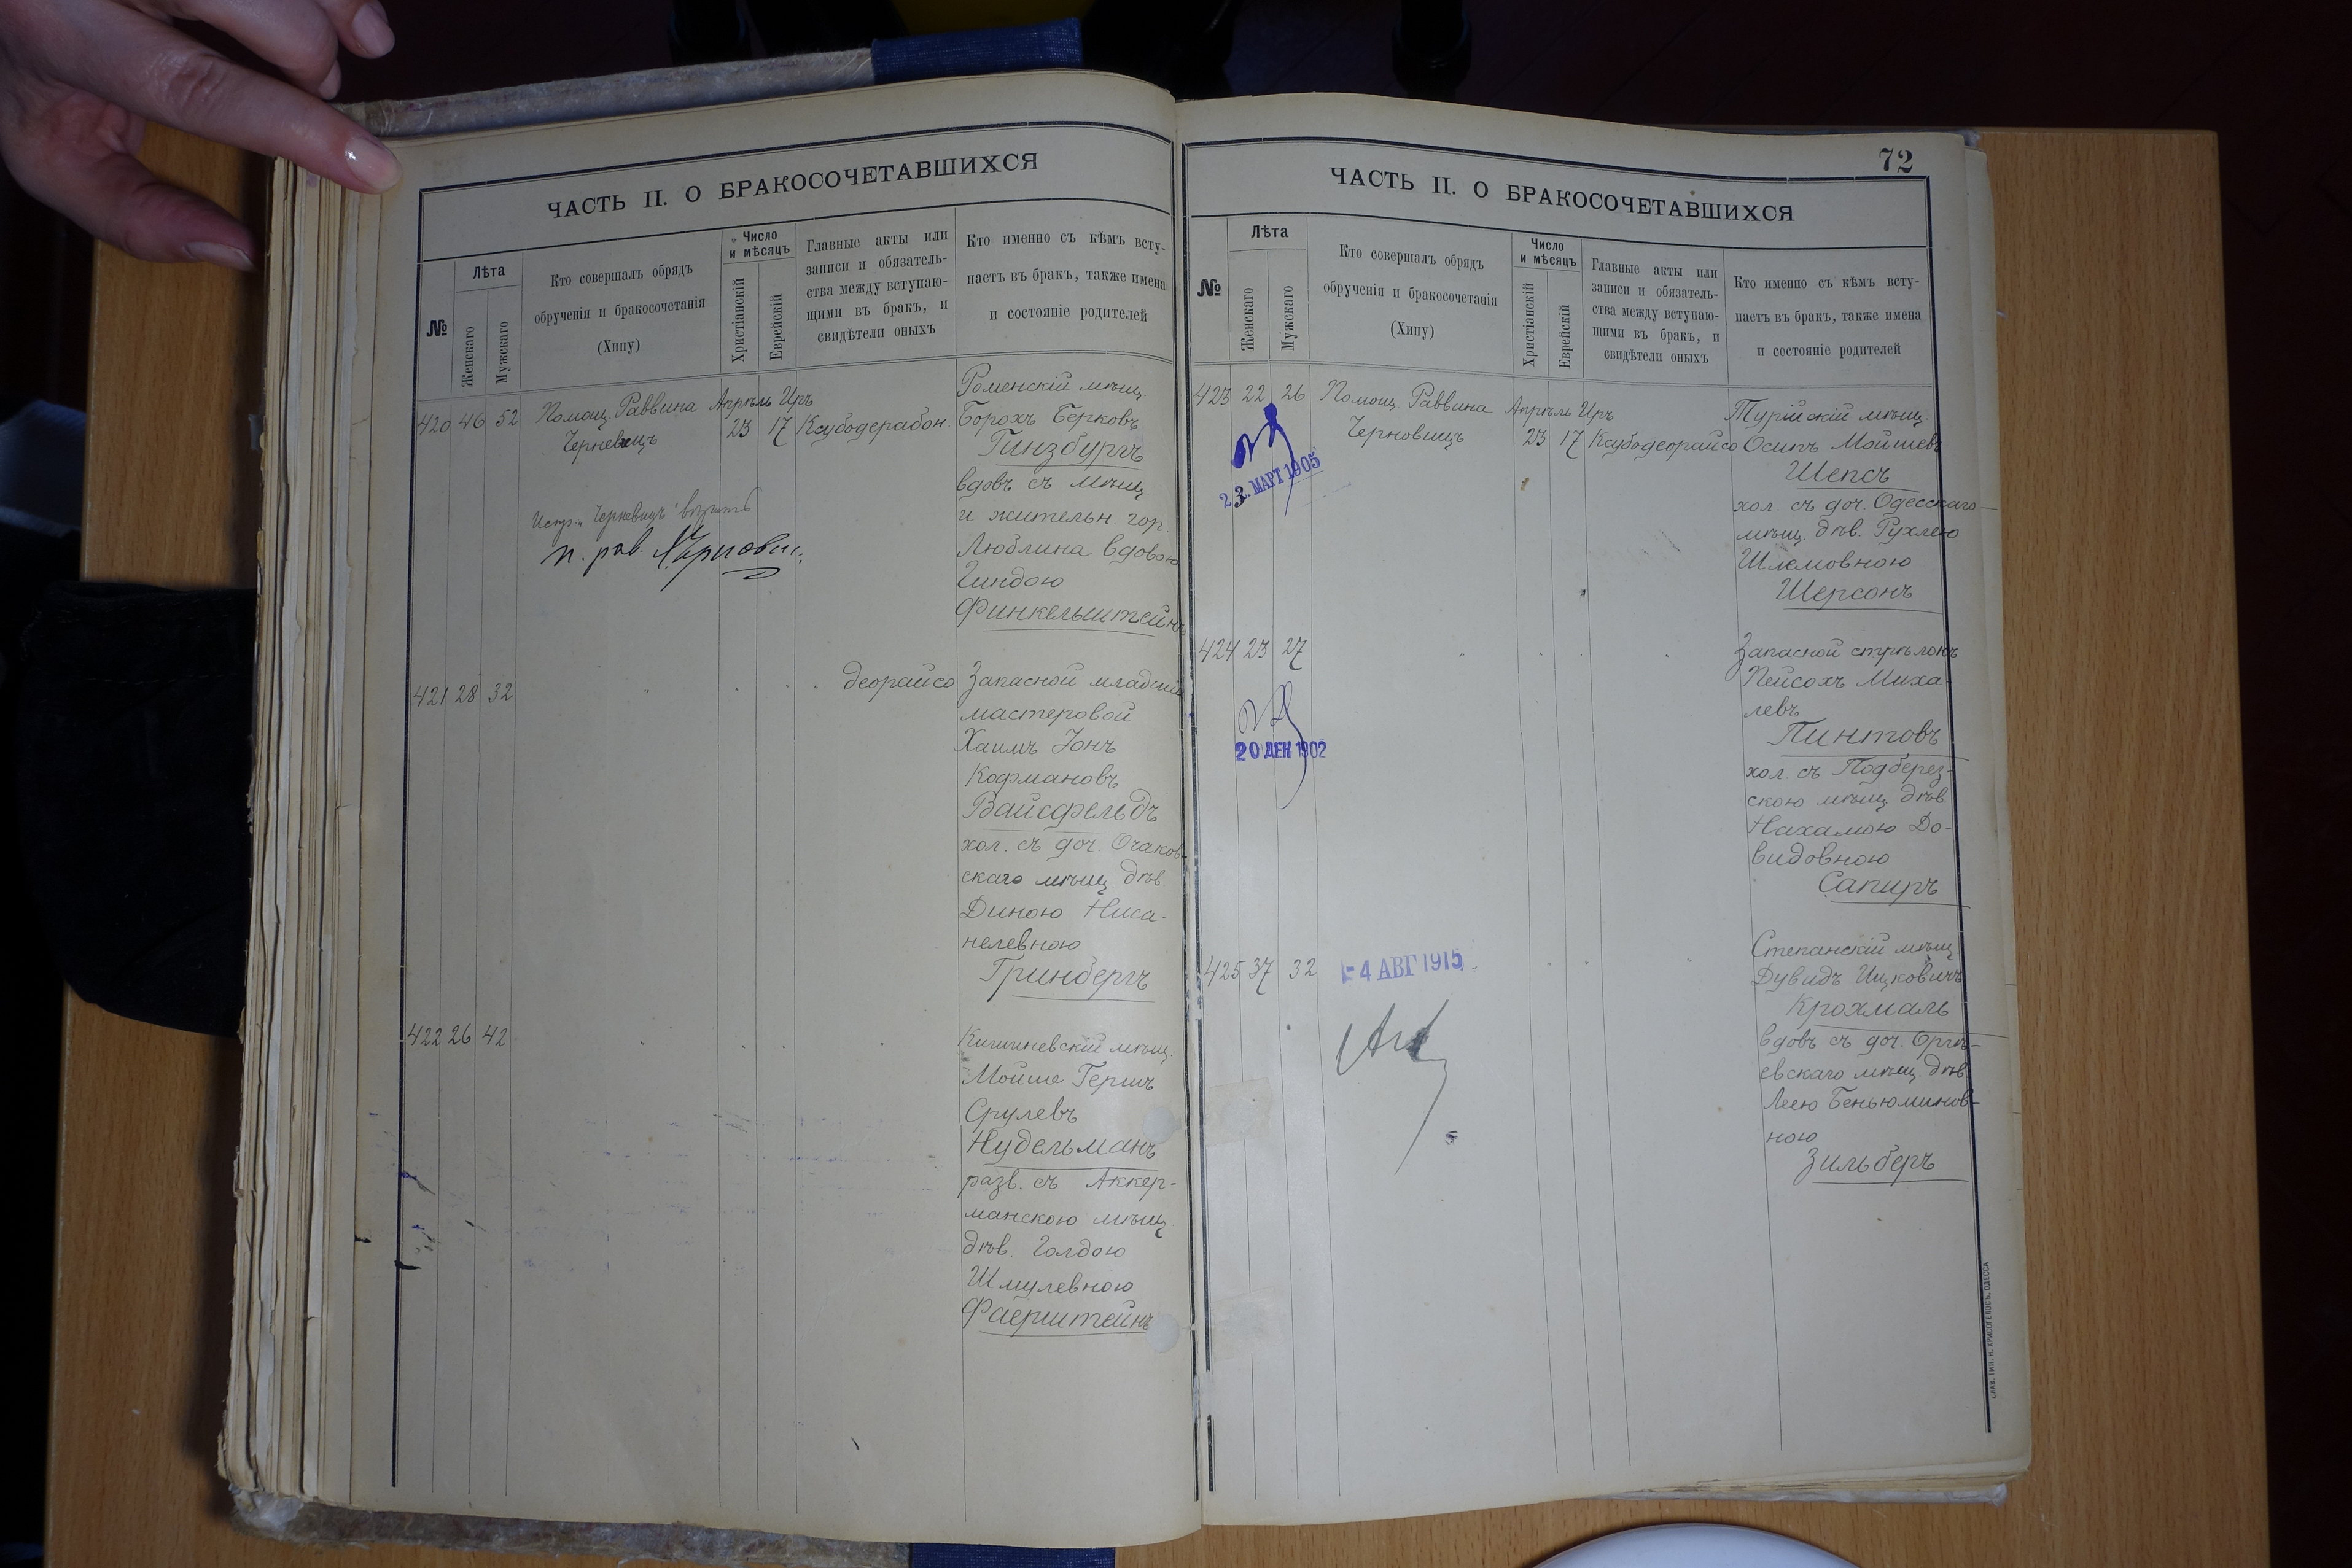 ЧАСТЬ II. О БРАКОСОЧЕТАВШИХСЯ
№
Лѣта
Женскаго
Мужскаго
Кто совершалъ обрядъ
обрученія и бракосочетанія
(Хипу)
Число
и мѣсяцъ
Христіанскій
Еврейскій
Главные акты или
записи и обязатель-
ства между вступаю-
щими въ бракъ, и
свидѣтели оныхъ
Кто именно съ кѣмъ всту-
паетъ въ бракъ, также имена
и состояніе родителей
420 46 52
Помощ. Раввина
Черневицъ
Апрѣль Иръ
23 17
Ксубодерабон.
Роменскій мѣщ.
Борохъ Берковъ
Гинзбургъ
вдовъ съ мѣщ
и жительн. гор.
Люблина вдовою
Гиндою
Финкельштейнъ
п. рав.
421 28 32
деорайсо
Запасной младшій
мастеровой
Хаимъ Іонъ
Кофмановъ
Вайсфельдъ
хол. съ доч. Очаков-
скаго мѣщ дѣв.
Диною Ниса-
нелевною
Гринбергъ
422 26 42
Кишиневскій мѣщ.
Мойше Гершъ
Срулевъ
Нудельманъ
разв. съ Аккер-
манскою мѣщ.
дѣв. Голдою
Шмулевною
Фаерштейнъ
72
ЧАСТЬ II. О БРАКОСОЧЕТАВШИХСЯ
№
Лѣта
Женскаго
Мужскаго
Кто совершалъ обрядъ
обрученія и бракосочетанія
(Хипу)
Число
и мѣсяцъ
Христіанскій
Еврейскій
Главные акты или
записи и обязатель-
ства между вступаю-
щими въ бракъ, и
свидѣтели оныхъ
Кто именно съ кѣмъ всту-
паетъ въ бракъ, также имена
и состояніе родителей
423 22 26
Помощ. Раввина
Черновицъ
Апрѣль Иръ
23 17
Ксубодеорайсо
Турійскій мѣщ.
Осипъ Мойшевъ
Шепсъ
хол. съ доч. Одесскаго
мѣщ. дѣв. Рухлею
Шлемовною
Шерсонъ
МАРТ 1905
424 23 27
20 ДЕК 1902
Запасной стрѣлокъ
Пейсохъ Миха-
левъ
Пинтовъ
хол. съ Подберез-
скою мѣщ. дѣв
Нахамою До-
видовною
Сапиръ
425 37 32
-4 АВГ 1915
Степанскій мѣщ
Дувидъ Ицковичъ
Крохмаль
вдовъ съ доч. Оргѣ-
евскаго мѣщ. дѣв.
Леею Беньюминов-
ною
Зильберъ
СЛАВ. ТИП. Н. ХРИСОГЕЛОСЪ, ОДЕССА